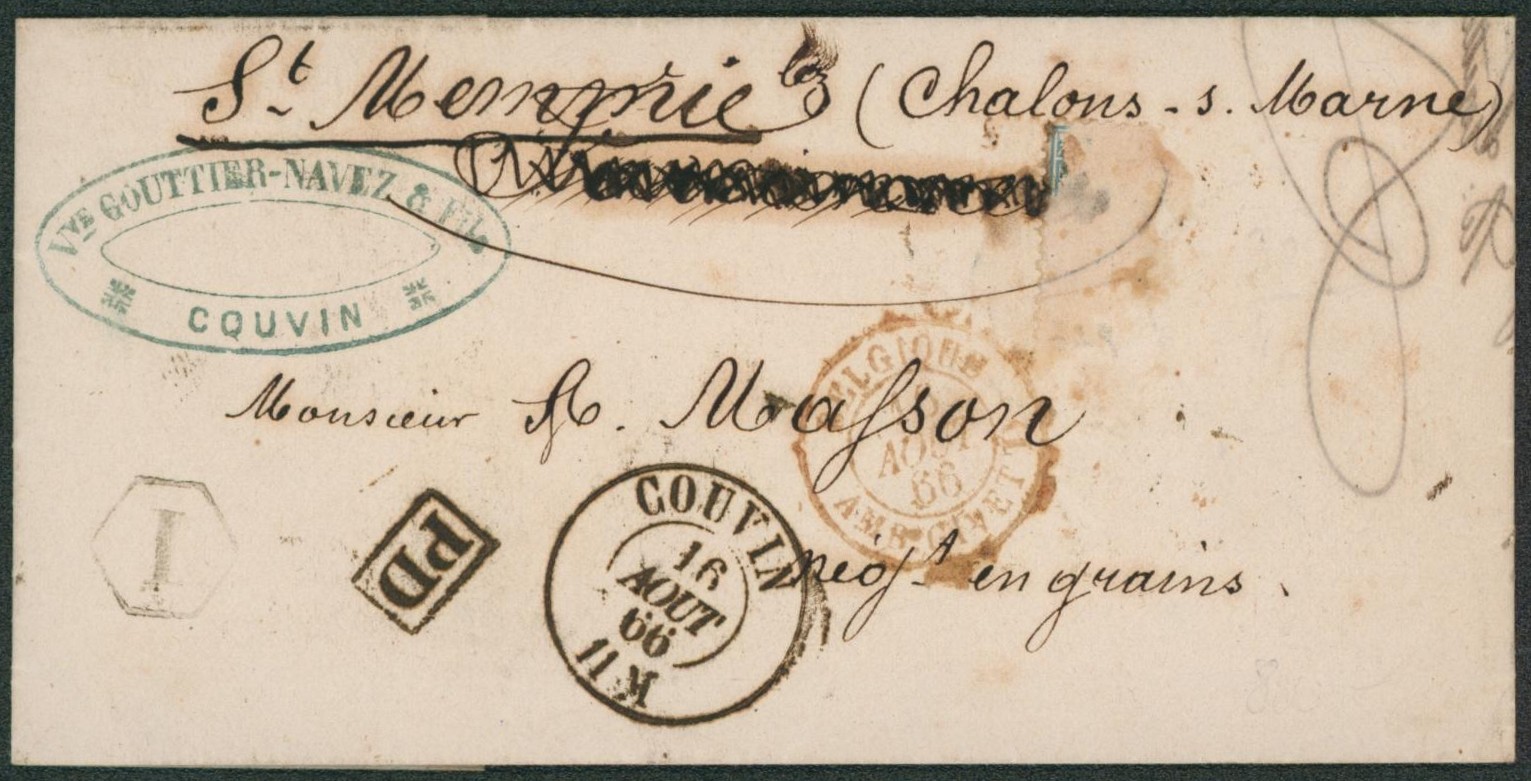 St Memmie lez (Chalons-s. Marne)
Vve GOUTTIER-NAVEZ & Fils
COUVIN
BELGIQUE
AOUT
66
AMB GIVET
Monsieur A. Masson
négt en grains.
I
PD
COUVIN
16
AOUT
66
11 M